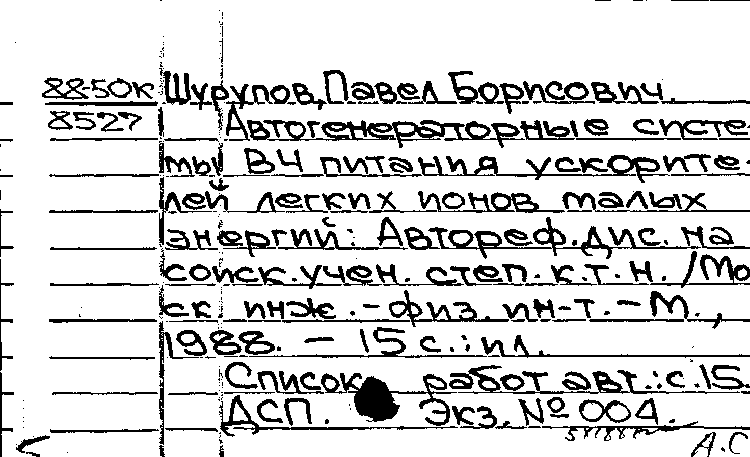 88-50к Шурупов, Павел Борисович.
8527 Автогенераторные систе-
мы ВЧ питания ускорите-
лей легких ионов малых
энергий: Автореф. дис. на
соиск. учен. степ. к.т.н. /Мо
ск инж.-физ. ин-т. - М.,
1988. - 15 с.: ил.
Список работ авт.: с.15.
ДСП. Экз. № 004.
А.С